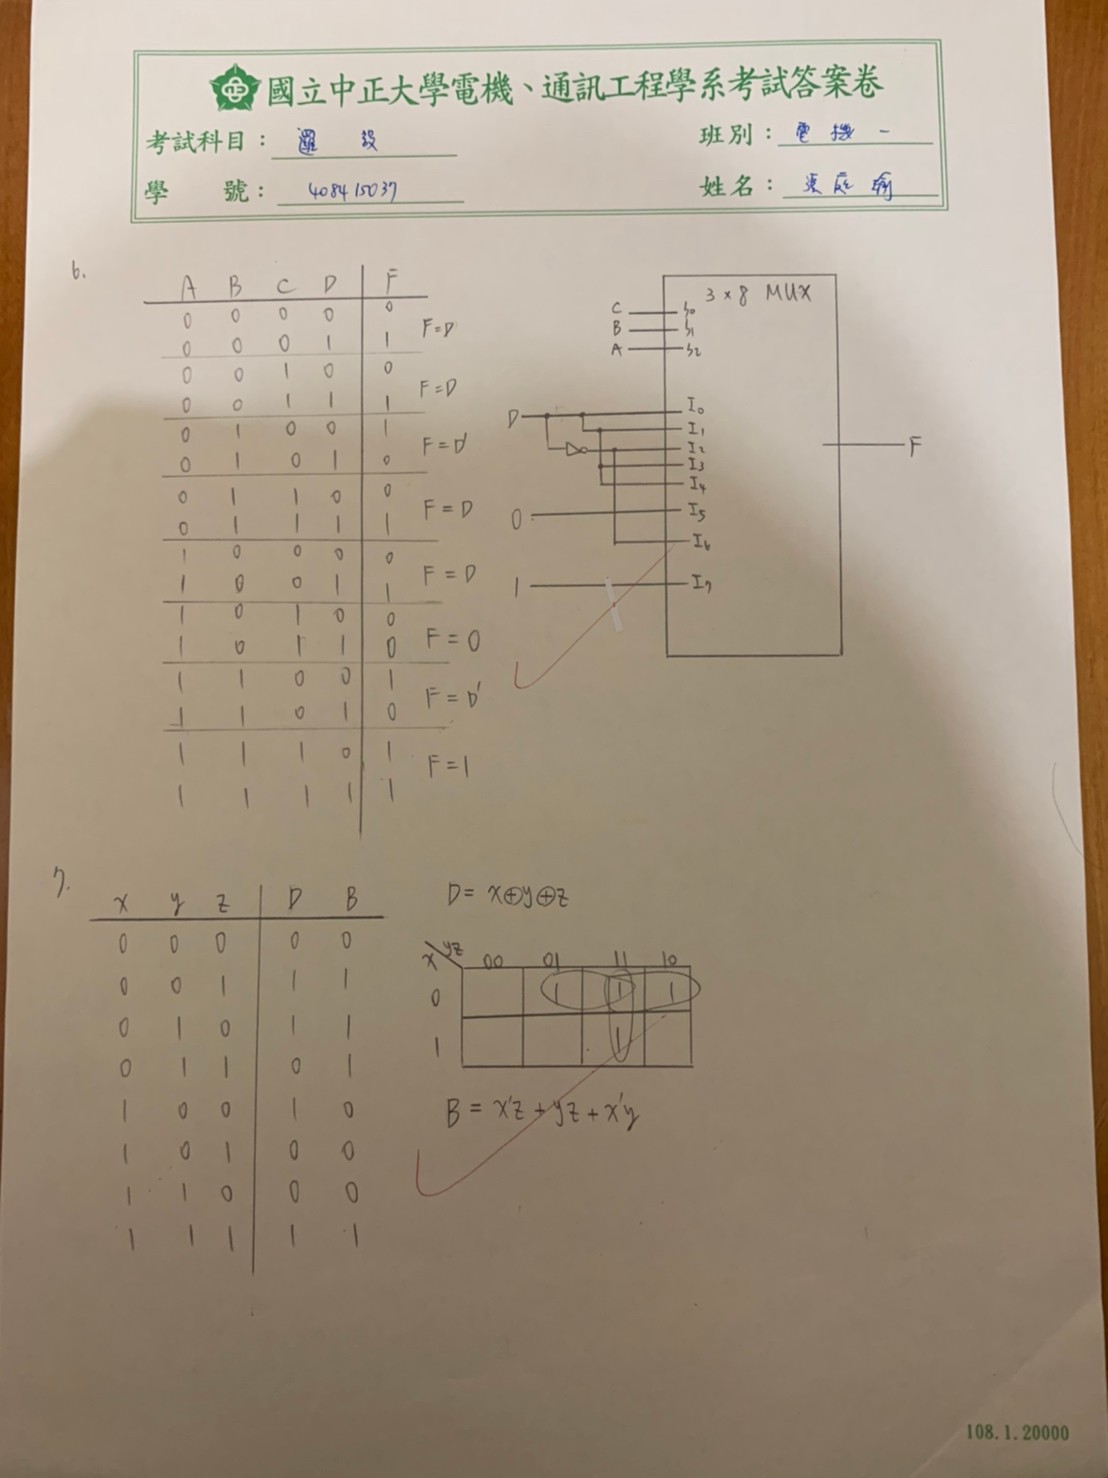 國立中正大學電機、通訊工程學系考試答案卷
考試科目： 邏 設
班別： 電 機 一
學 號： 408415037
姓名：
6.
A B C D F
0 0 0 0 0
0 0 0 1 1
F=D
0 0 1 0 0
0 0 1 1 1
F=D
0 1 0 0 1
0 1 0 1 0
F=D'
0 1 1 0 0
0 1 1 1 1
F=D
1 0 0 0 0
1 0 0 1 1
F=D
1 0 1 0 0
1 0 1 1 0
F=0
1 1 0 0 1
1 1 0 1 0
F=D'
1 1 1 0 1
1 1 1 1 1
F=1
3×8 MUX
C S0
B S1
A S2
D I0
I1
I2
I3
I4
0 I5
I6
1 I7
F
7.
x y z D B
0 0 0 0 0
0 0 1 1 1
0 1 0 1 1
0 1 1 0 1
1 0 0 1 0
1 0 1 0 0
1 1 0 0 0
1 1 1 1 1
D= x⊕y⊕z
x yz 00 01 11 10
0 1 1 1
1 1
B = x'z + yz + x'y
108.1.20000